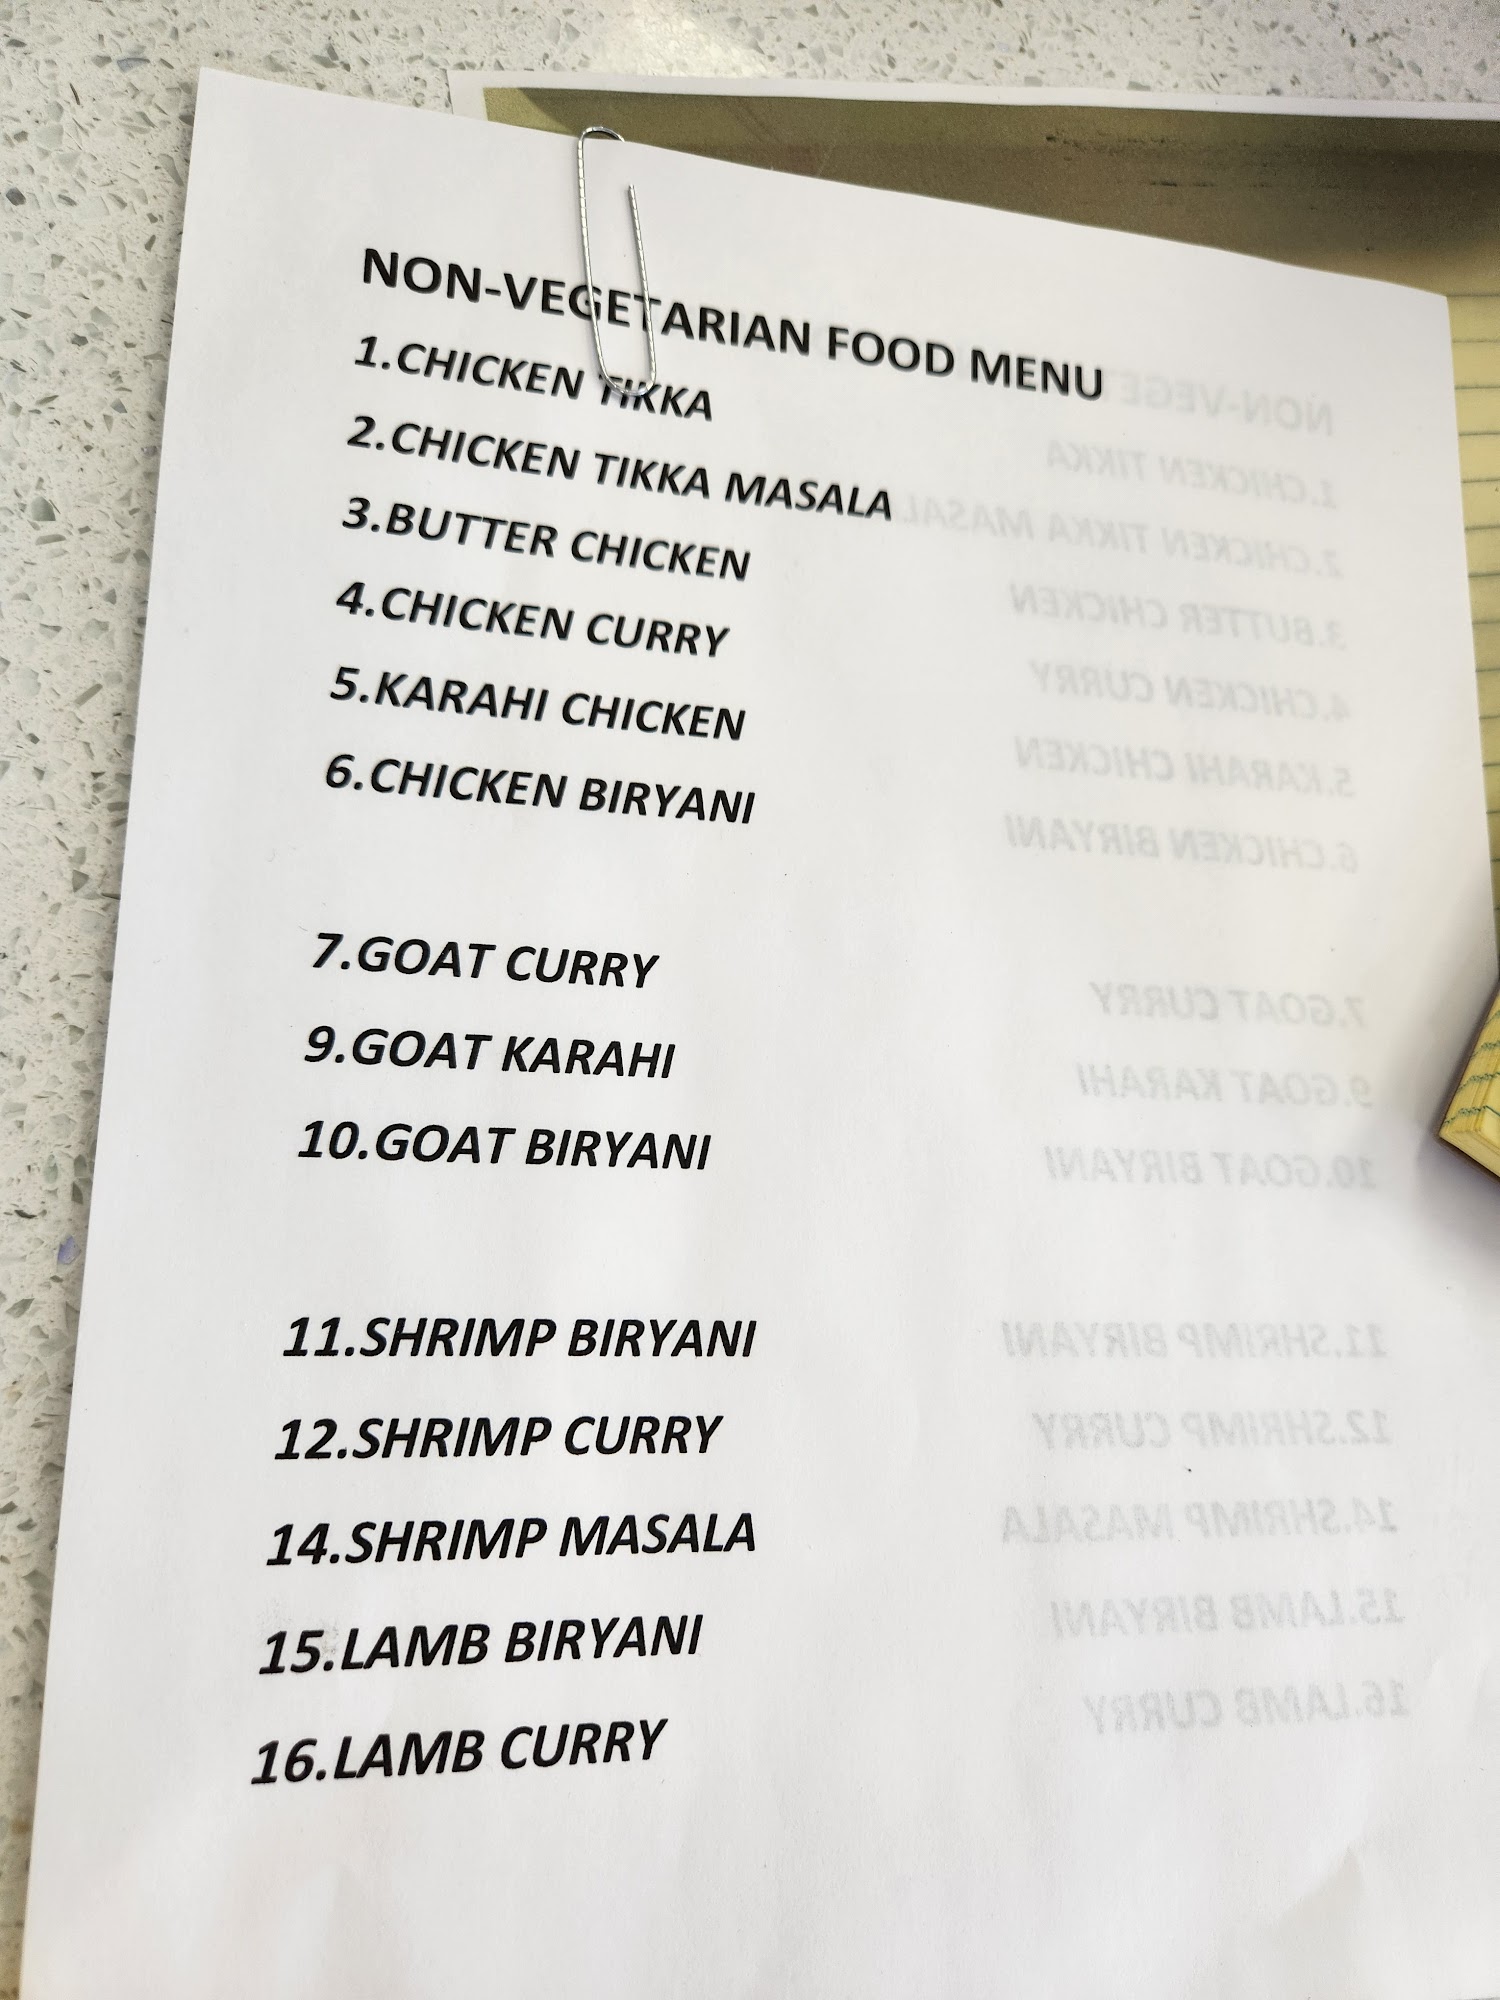 NON-VEGETARIAN FOOD MENU
1.CHICKEN TIKKA
2.CHICKEN TIKKA MASALA
3.BUTTER CHICKEN
4.CHICKEN CURRY
5.KARAHI CHICKEN
6.CHICKEN BIRYANI
7.GOAT CURRY
9.GOAT KARAHI
10.GOAT BIRYANI
11.SHRIMP BIRYANI
12.SHRIMP CURRY
14.SHRIMP MASALA
15.LAMB BIRYANI
16.LAMB CURRY